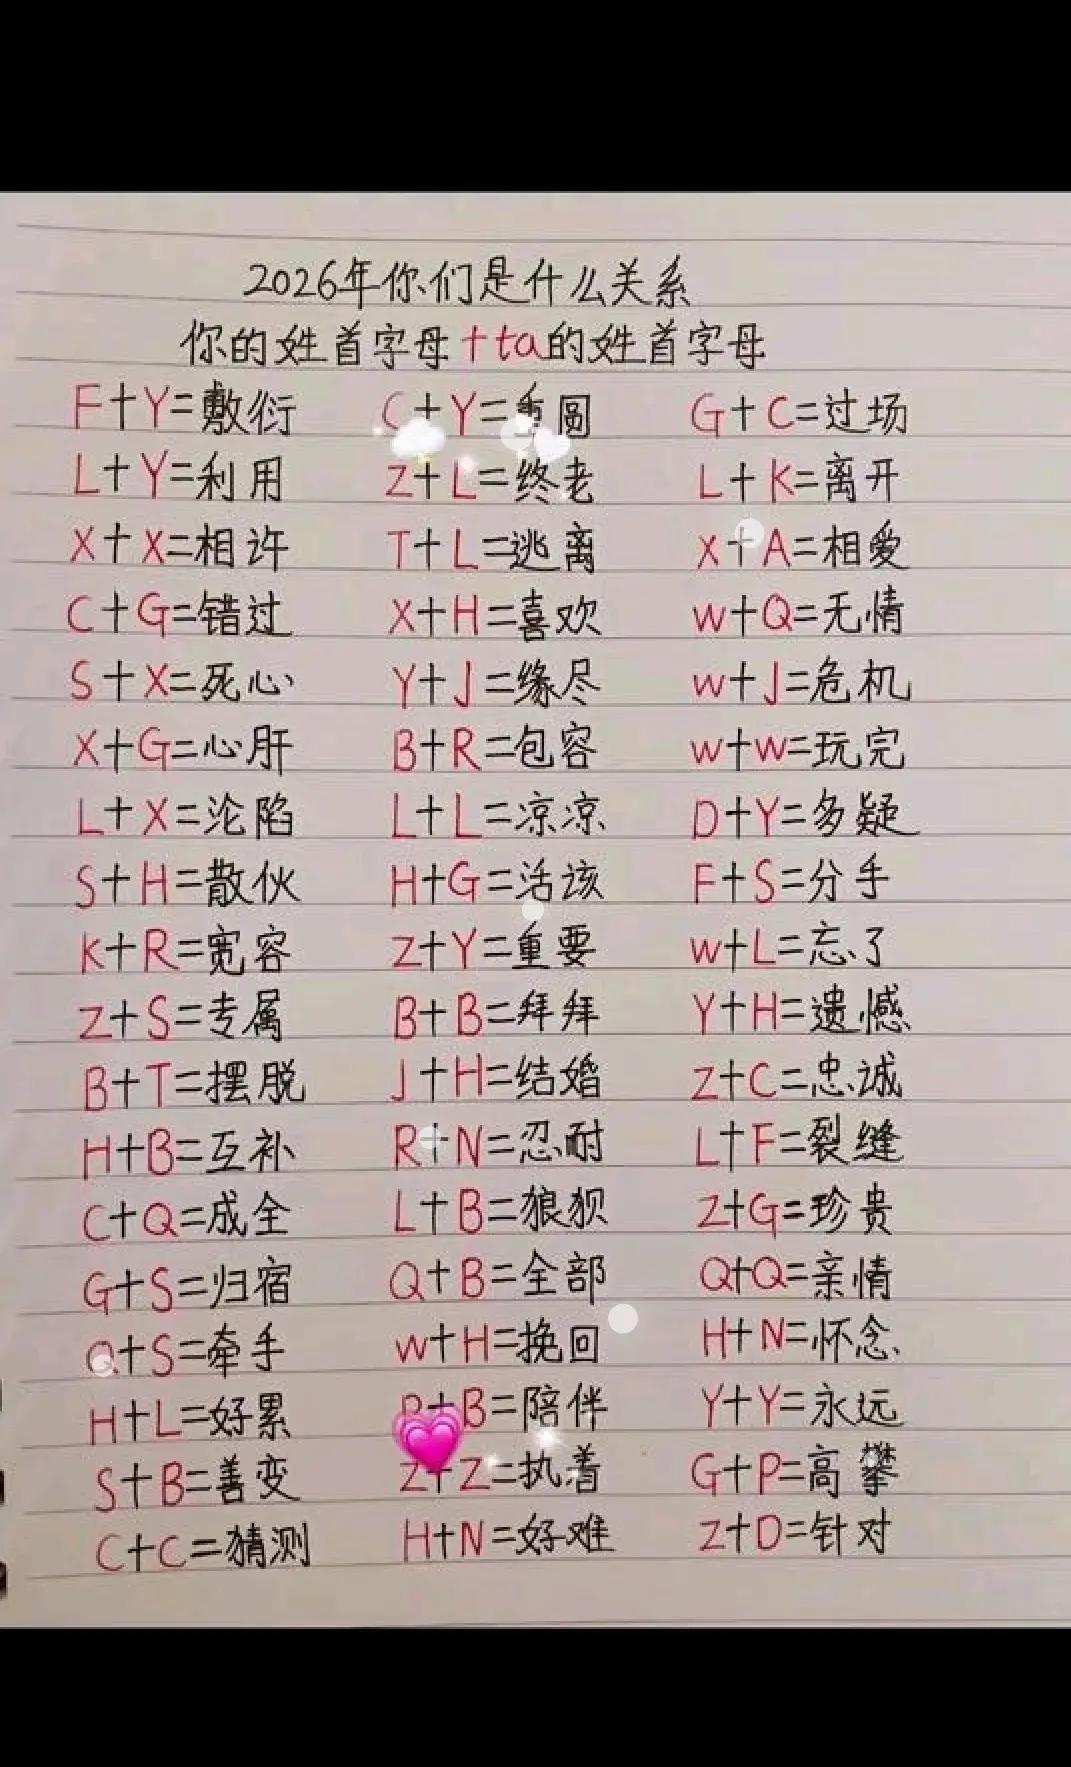 2026年你们是什么关系
你的姓首字母+ta的姓首字母
F+Y=敷衍 C+Y=重圆 G+C=过场
L+Y=利用 Z+L=终老 L+K=离开
X+X=相许 T+L=逃离 X+A=相爱
C+G=错过 X+H=喜欢 W+Q=无情
S+X=死心 Y+J=缘尽 W+J=危机
X+G=心肝 B+R=包容 W+W=玩完
L+X=沦陷 L+L=凉凉 D+Y=多疑
S+H=散伙 H+G=活该 F+S=分手
K+R=宽容 Z+Y=重要 W+L=忘了
Z+S=专属 B+B=拜拜 Y+H=遗憾
B+T=摆脱 J+H=结婚 Z+C=忠诚
H+B=互补 R+N=忍耐 L+F=裂缝
C+Q=成全 L+B=狼狈 Z+G=珍贵
G+S=归宿 Q+B=全部 Q+Q=亲情
Q+S=牵手 W+H=挽回 H+N=怀念
H+L=好累 +B=陪伴 Y+Y=永远
S+B=善变 Z+Z=执着 G+P=高攀
C+C=猜测 H+N=好难 Z+D=针对